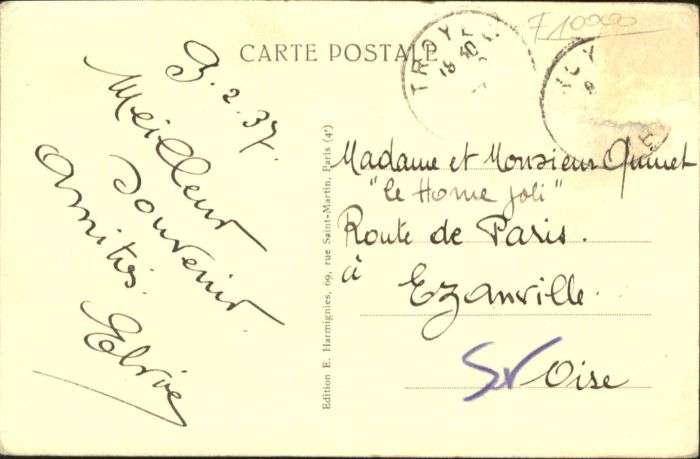 CARTE POSTALE
9.2.37.
Meilleur
souvenir
amitiés.
TROY
18
F1000
Edition E. Harmignies, 69, rue Saint-Martin, Paris (4ᵉ)
Madame et Monsieur Quinet
"le Home joli"
Route de Paris.
à
Ezanville.
S&O Oise